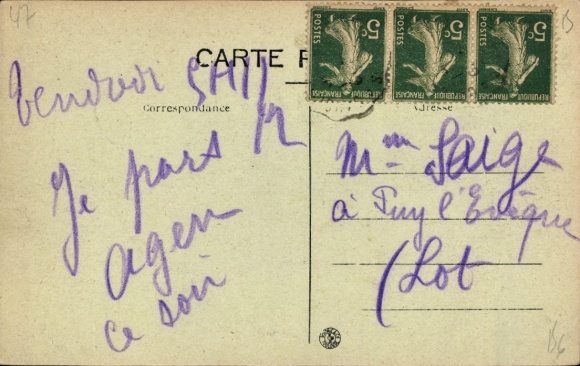 47
CARTE
Correspondance
Adresse
5c 5c 5c
POSTES POSTES POSTES
REPUBLIQUE FRANÇAISE REPUBLIQUE FRANÇAISE REPUBLIQUE FRANÇAISE
Vendredi 5H1/2
Je pars
Agen
ce soir
Mme Saige
à Puy l'Evêque
(Lot